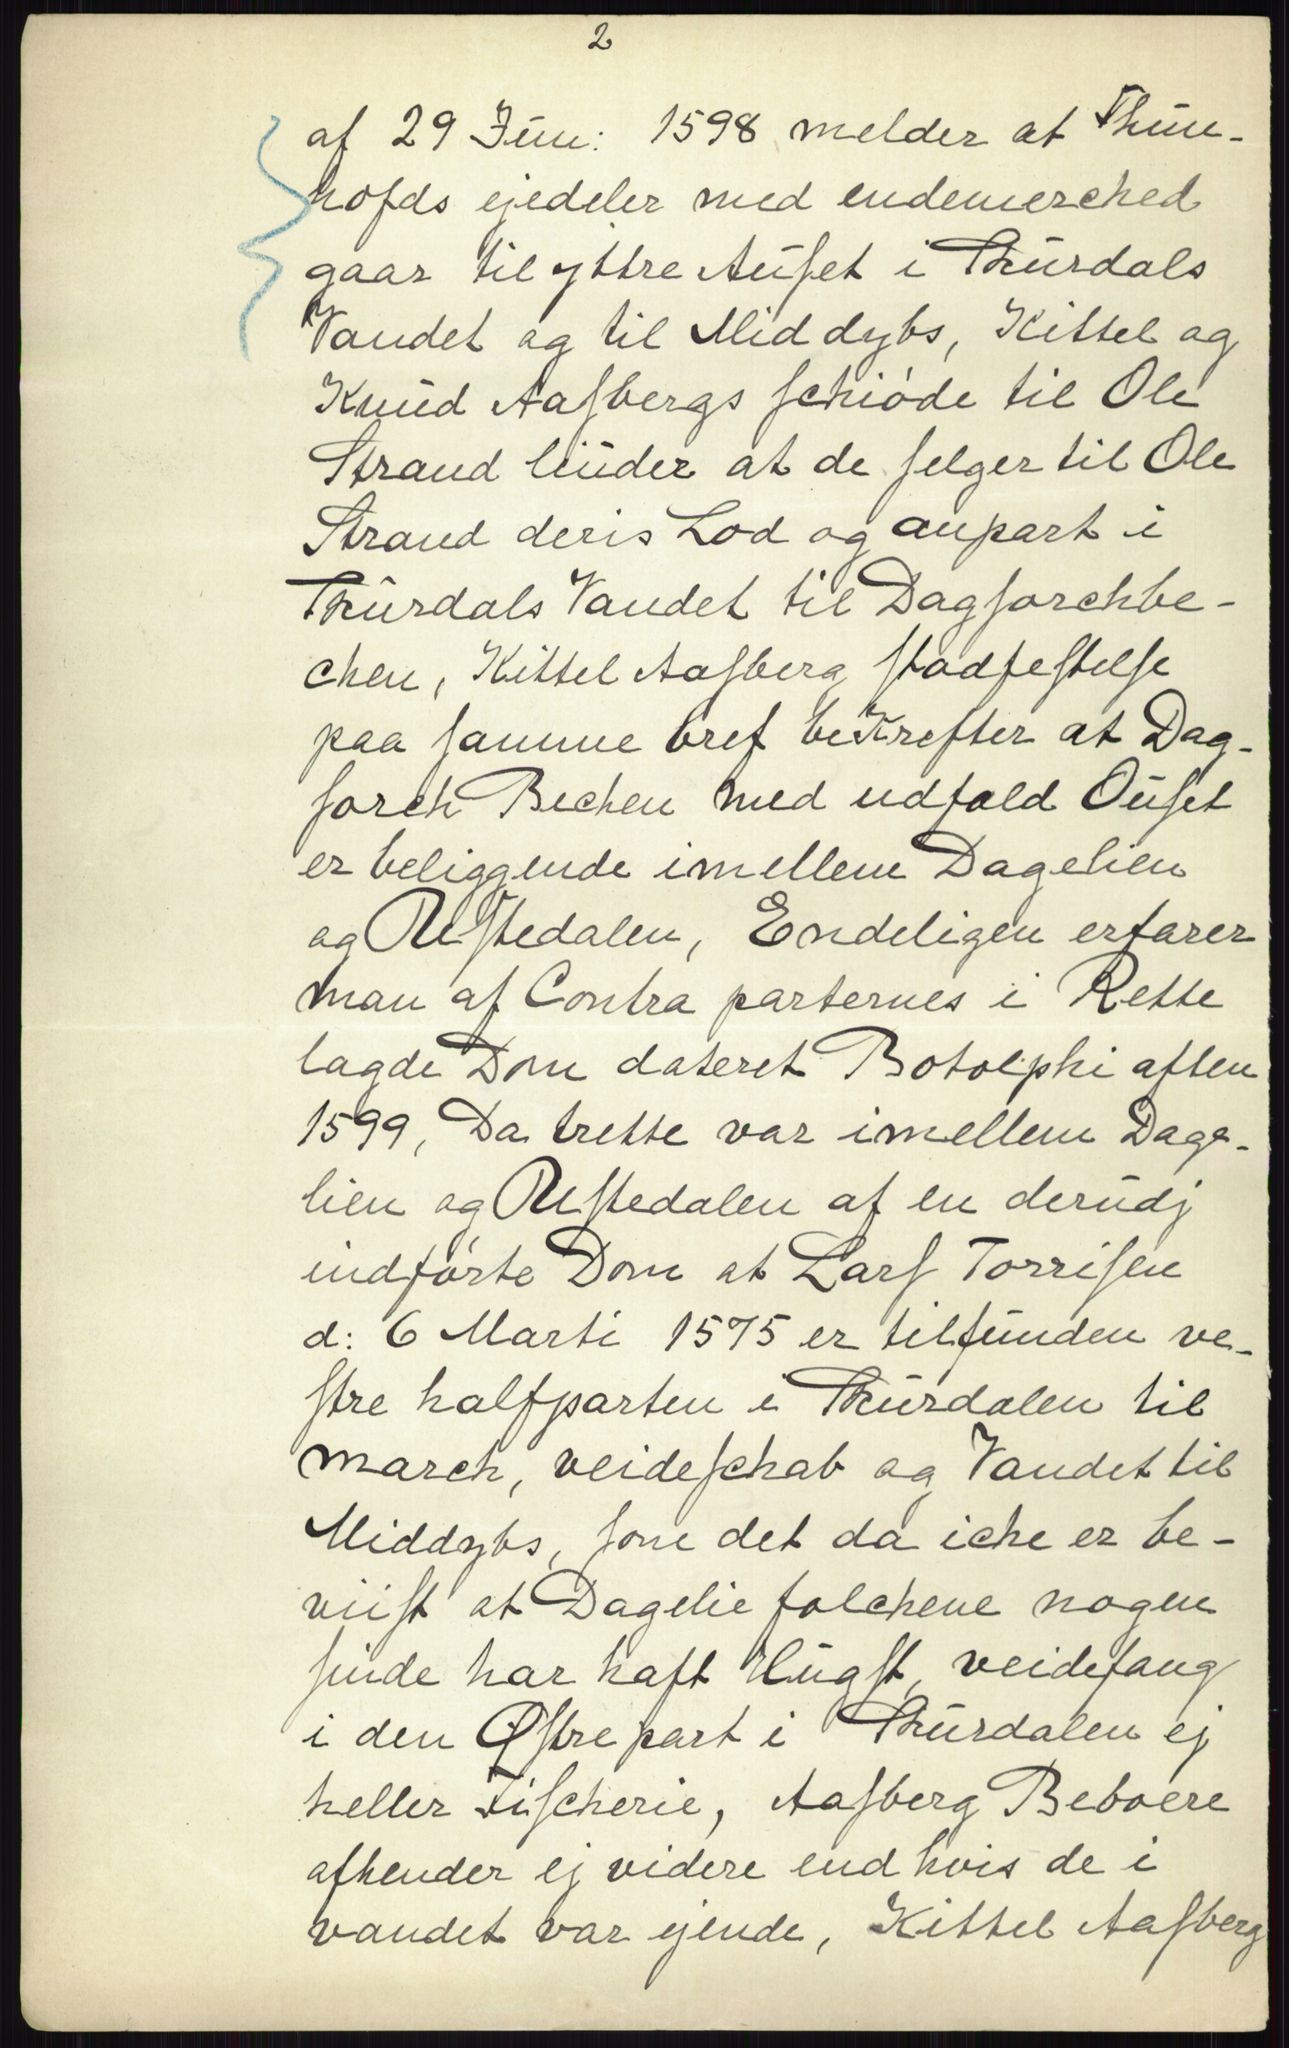 2
af 29 Jun: 1598 melder at Thun-
hofds ejedeler med endemerched
gaar til yttre Auset i Thurdals
Vandet og til Middybs, Kittel og
Knud Aasbergs schiøde til Ole
Strand liuder at de selger til Ole
Strand deris Lod og anpart i
Thurdals Vandet til Dagsorchbe-
chen, Kittel Aasberg stadfestelse
paa samme bref beKrefter at Dag-
sorch Bechen med udfald Ouset
er beliggende imellem Dagelien
og Ustedalen, Endeligen erfarer
man af Contra parternes i Rette
lagde Dom dateret Botolphi aften
1599, Da trette var imellem Dage-
lien og Ustedalen af en derudj
indførte Dom at Lars Torrisen
d: 6 Marti 1575 er tilfunden ve-
stre halfparten i Thurdalen til
march, veideschab og Vandet til
Middybs, som det da iche er be-
viist at Dagelie folchene nogen
sinde har haft Hugst, veidefang
i den Østre part i Thurdalen ej
heller Fischerie, Aasberg Beboere
afhender ej videre end hvis de i
vandet var ejende, Kittel Aasberg